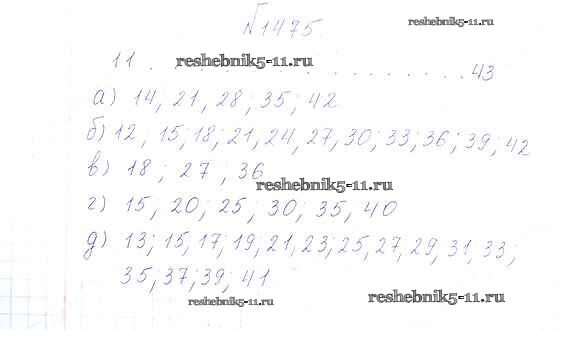 №1475.
reshebnik5-11.ru
11 . . . . . . . . . . . . . . . . . . 43
reshebnik5-11.ru
а) 14, 21, 28; 35; 42
б) 12; 15; 18; 21, 24, 27, 30; 33; 36; 39; 42
в) 18; 27; 36
reshebnik5-11.ru
г) 15, 20; 25; 30; 35, 40
д) 13; 15, 17; 19, 21, 23; 25, 27, 29, 31, 33;
35, 37; 39; 41
reshebnik5-11.ru
reshebnik5-11.ru